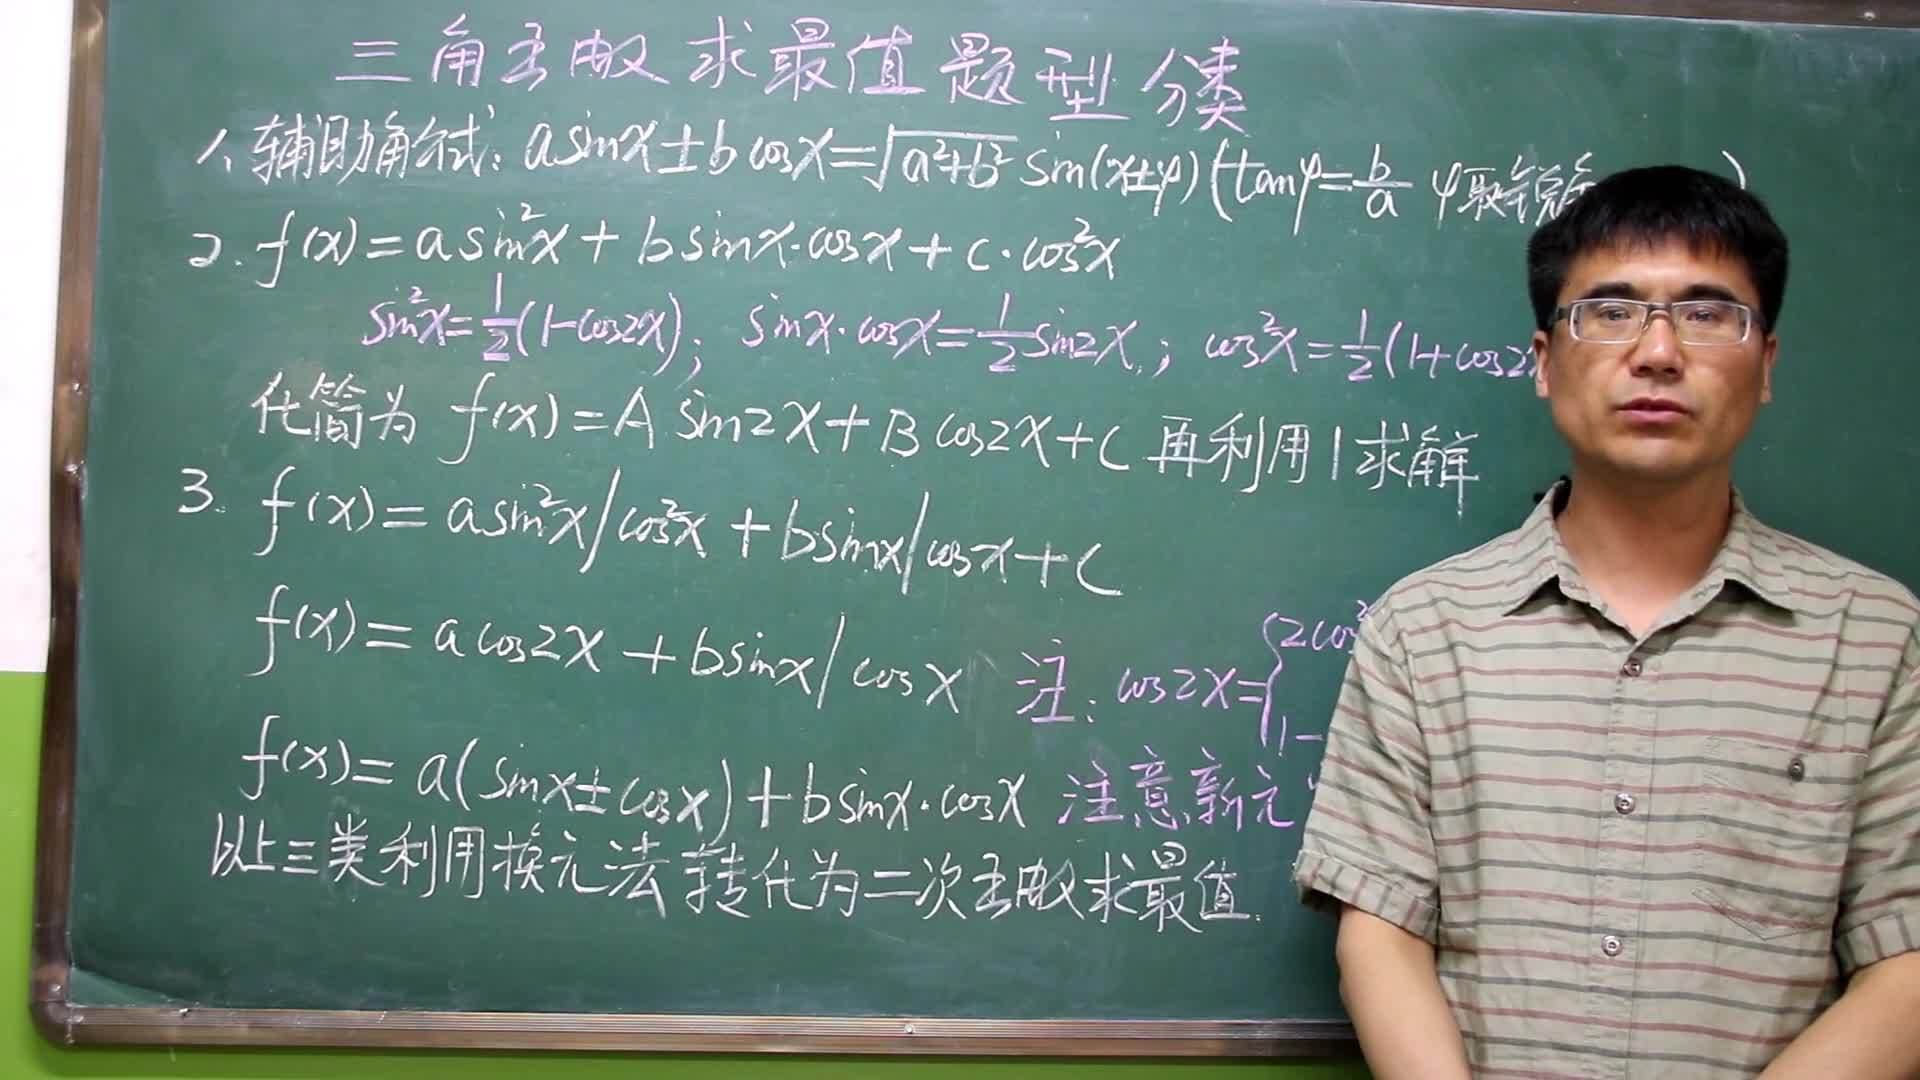 三角函数求最值题型分类
1、辅助角公式: asinx±bcosx=√(a²+b²) sin(x±φ) (tanφ=b/a φ取锐角 )
2. f(x)=asin²x+bsinx·cosx+c·cos²x
sin²x=1/2(1-cos2x); sinx·cosx=1/2sin2x; cos²x=1/2(1+cos2
化简为 f(x)=Asin2x+Bcos2x+C 再利用1求解
3. f(x)=asin²x/cos²x+bsinx/cosx+C
f(x)=acos2x+bsinx/cosx 注: cos2x={2cos² 1-
f(x)=a(sinx±cosx)+bsinx·cosx 注意新元
以上三类利用换元法转化为二次函数求最值.